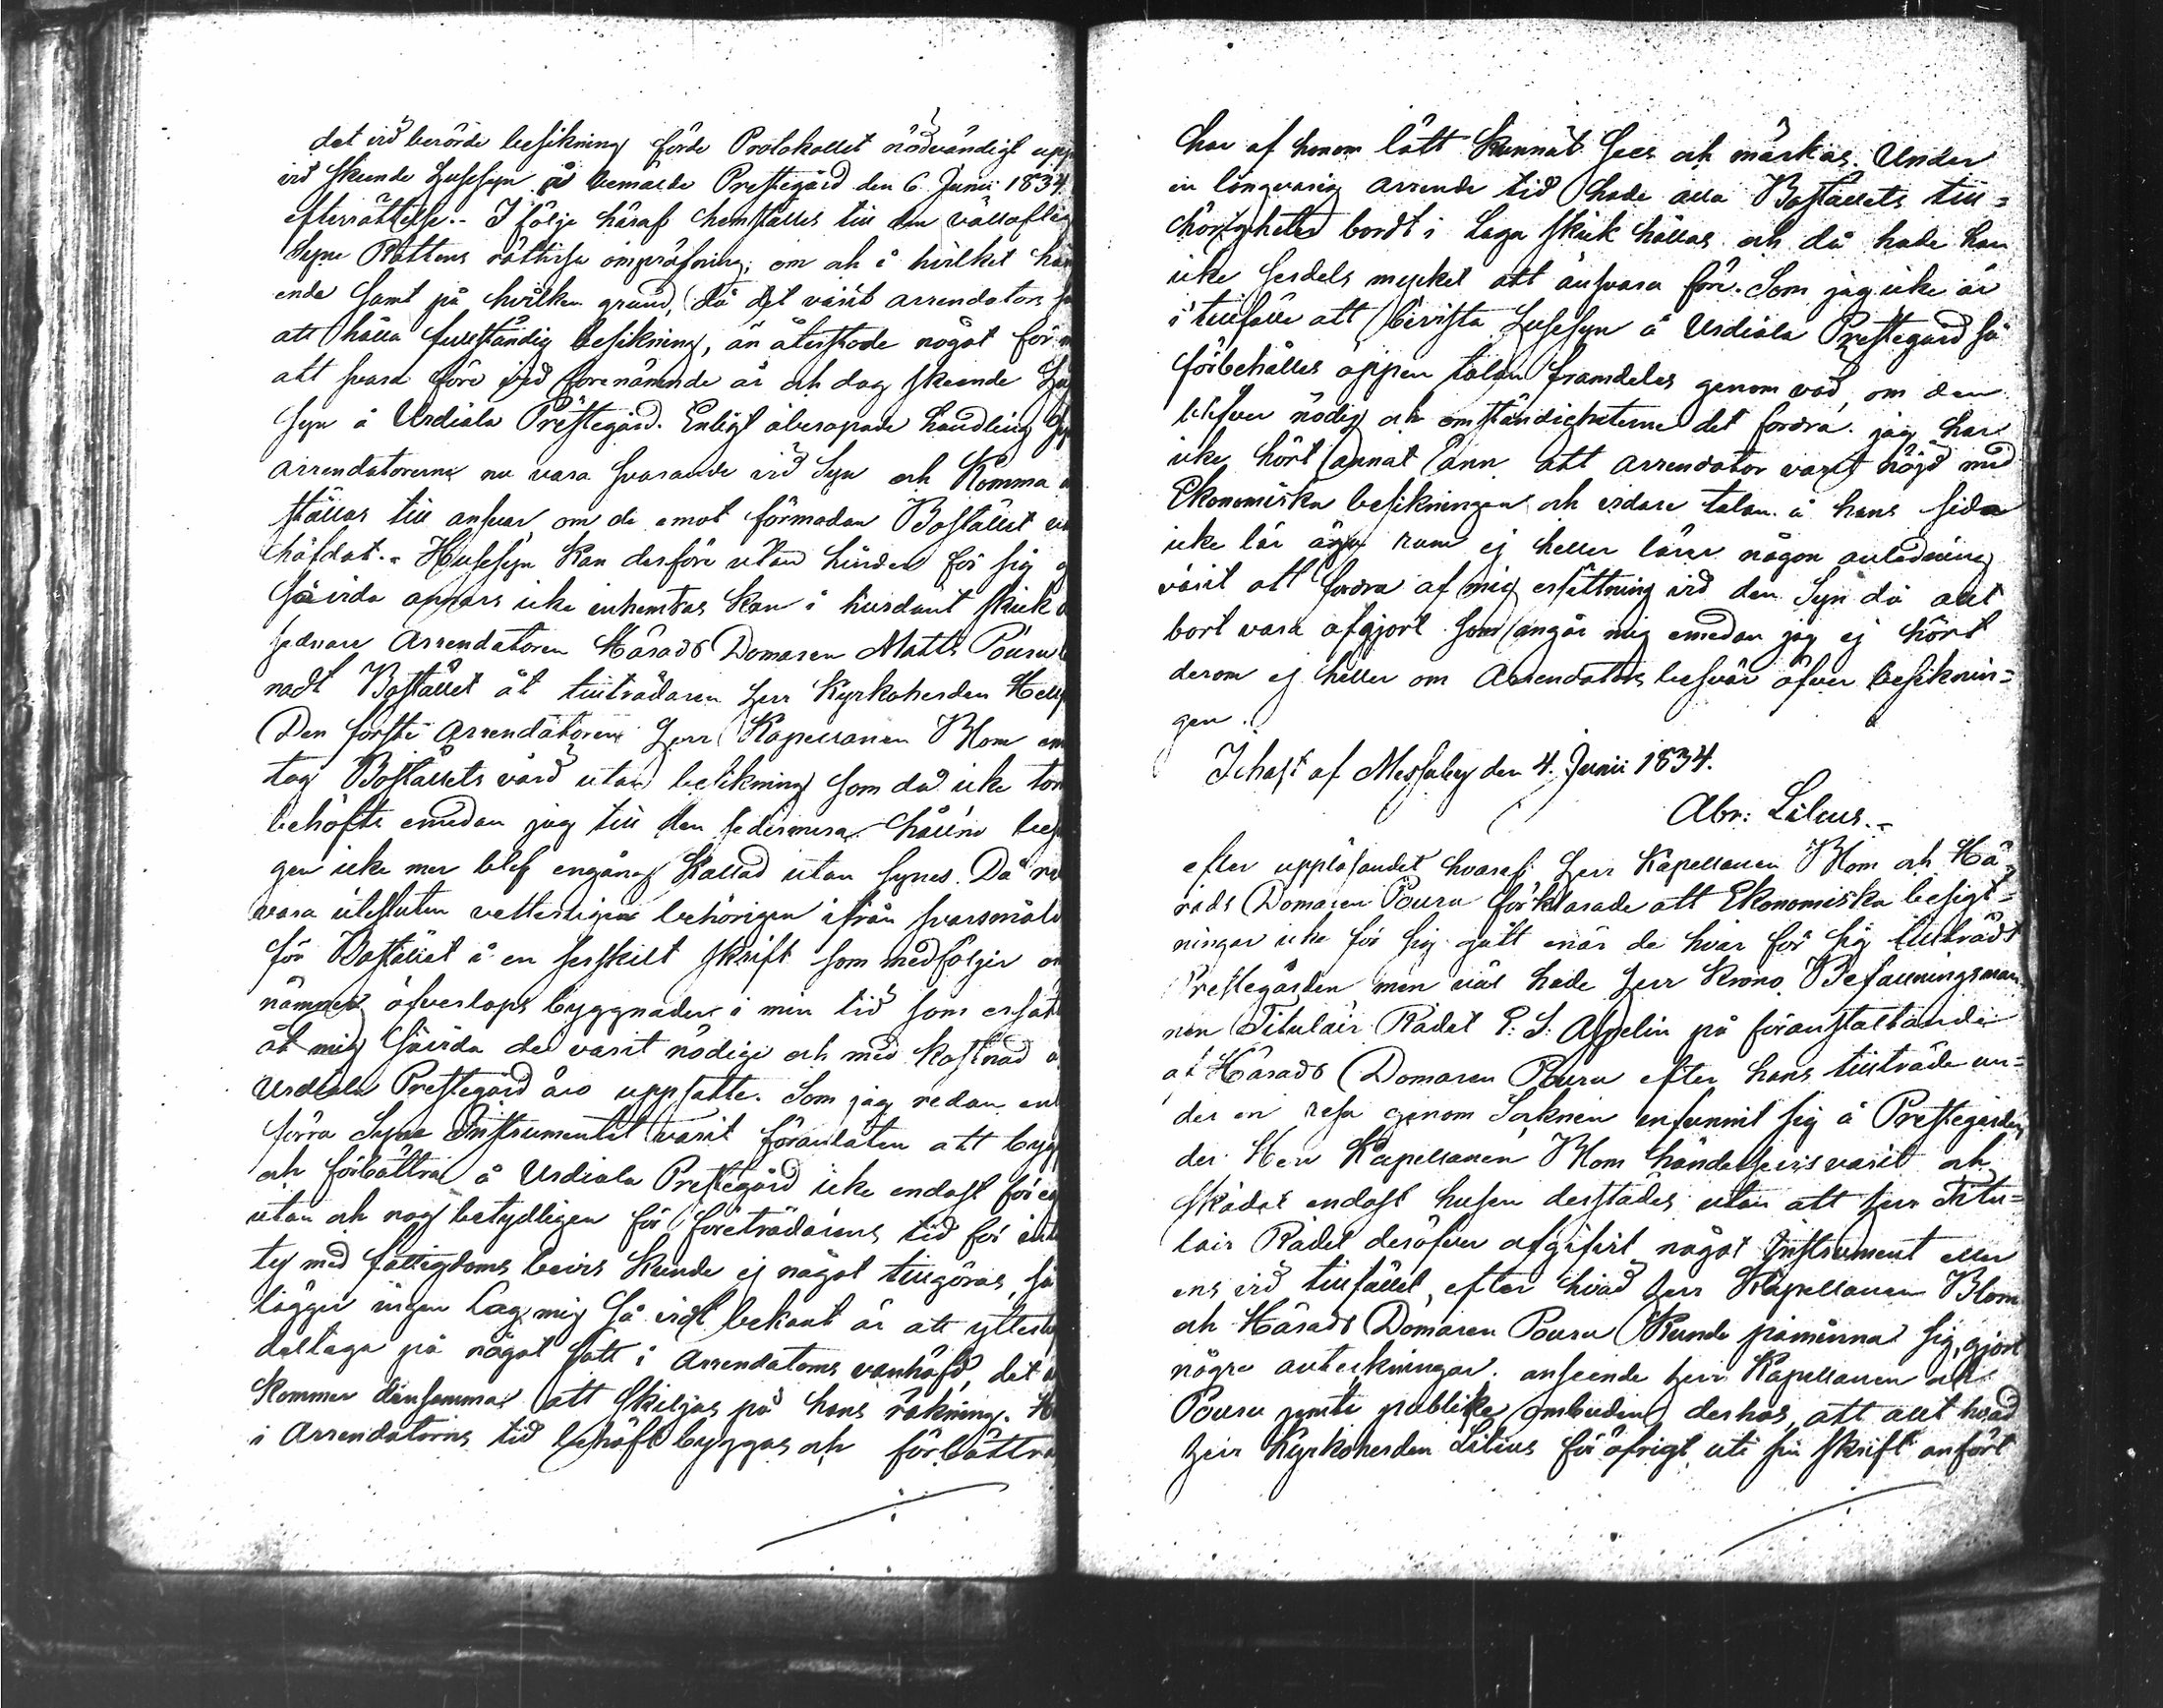 det vid berörde besikning förde Protokollet nödvändigt upp
vid skeende Husesyn på bemälde Prestegård den 6 Junii 1834.
efterrättelse.- I följe häraf hemställes till den vällofliga
Syne Rättens rättvisa ompröfning, om och i hvilket hän
ende samt på hvilken grund, då det varit arrendators
att hålla fullständig besikning, än återstode något för
att svara före vid förenämnde år och dag skeende Huse
syn å Urdiala Prestegård. Enligt åberopade handling
arrendatorerne nu vara svarande vid Syn och Komma
ställas till ansvar, om de emot förmodan Bostället
häfdat.- Husesyn kan derföre utan hinder för sig
såvida annars icke inhemtas kan i hurdant skick
sednare Arrendatoren Härads Domaren Matts Pouru
nadt Bostället åt tillträdaren Herr Kyrkoherden Hell
Den förste Arrendatoren Herr Kapellanen Blom em
tog Boställets vård utan besikning som då icke tor
behöfts emedan jag till den sedermera hållne besi
gen icke mer blef engång kallad utan synes. Då
vara utesluten vetterligen behörigen ifrån svarsmål
för Bostället å en serskilt skrift som medföljer
nämnes öfverlops byggnader i min tid som ersätt
åt mig såvida de varit nödige och med kostnad
Urdiala Prestegård äro uppsatte. Som jag redan en
förra Syne Instrumentet varit föranlåten att bygg
och förbättra å Urdiala Prestegård icke endast för eg
utan och nog betydligen för företrädarens tid för
ty med fattigdoms bevis kunde ej något tillgöras, så
lägger ingen Lag mig så vidt bekant är att ytterlig
deltaga på något sätt i Arrendatorns vanhäfd, det
kommer densamma att skiljas på hans räkning.
i Arrendatorns tid behöft byggas och förbättra
har af honom lätt kunnat sees och märkas. Under
en långvarig arrende tid hade alla Boställets till=
hörigheter bordt i Laga skick hållas och då hade han
icke serdels mycket att ansvara före. Som jag icke är
i tillfälle att bevista Husesyn å Urdiala Prestegård så
förbehålles öppen talan framdeles genom vad, om den
blifver nödig och omständigheterne det fordra. jag har
icke hört annat änn att arrendator varit nöjd med
Ekonomiska besikningen och vidare talan å hans sida
icke lär äga rum ej heller lärer någon anledning
varit att fordra af mig ersättning vid den Syn då allt
bort vara afgjort som angår mig emedan jag ej hört
derom ej heller om Arrendators besvär öfver besiknin=
gen.
Ichast af Messuby den 4. Junii 1834.
Abr: Lilius.-
efter uppläsandet hvaraf Herr Kapellanen Blom och Hä=
rads Domaren Pouru förklarade att Ekonomiska besigt=
ningar icke för sig gått enär de hvar för sig tillträdt
Prestegården men väl hade Herr Krono Befallningsman
nen Titulair Rådet E: J: Appelin på föranstaltande
af Härads Domaren Pouru efter hans tillträde un=
der en resa genom Socknen infunnit sig å Prestegården,
der Herr Kapellanen Blom händelsevis varit och
skådat endast husen derstädes utan att Herr Titu=
lair Rådet deröfver afgifvit något Instrument eller
ens vid tillfället, efter hvad Herr Kapellanen Blom
och Härads Domaren Pouru kunde påminna sig, gjort
några anteckningar. anseende Herr Kapellanen och
Pouru jemte publike ombuden derhos, att allt hvad
Herr Kyrkoherden Lilius för öfrigt uti sin skrift anfört